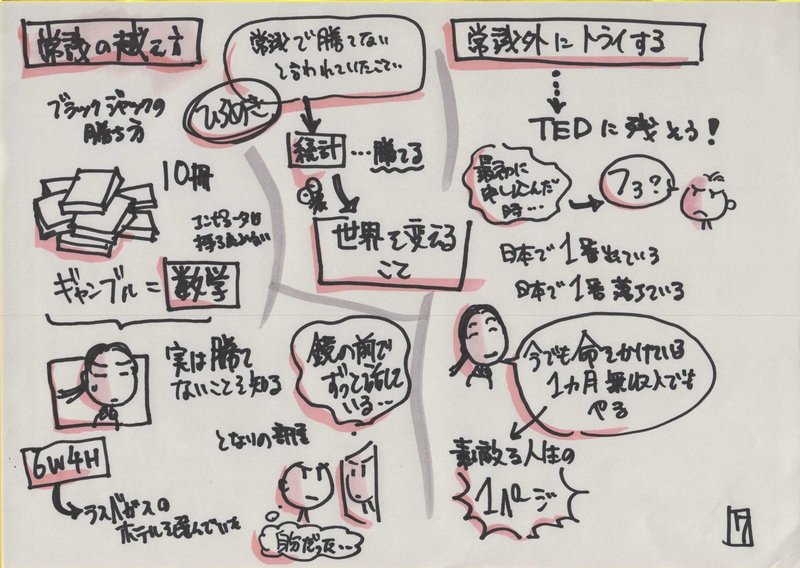 常識の越え方
ブラックジャックの
勝ち方
10冊
コンピュータは
持ち込めない
ギャンブル=数学
実は勝て
ないことを知る
6W4H
ラスベガスの
ホテルを選んでいた
常識で勝てない
と言われていたこと…
ひらめき
統計…勝てる
世界を変える
こと
鏡の前で
ずっと話して
いる…
となりの部屋
自分だった…
常識外にトライする
TEDに残ろう!
最初に
申し込んだ
時…
フラ?
日本で1番出ている
日本で1番落ちている
今でも命をかけている
1カ月無収入でも
やる
素敵な人生の
1ページ